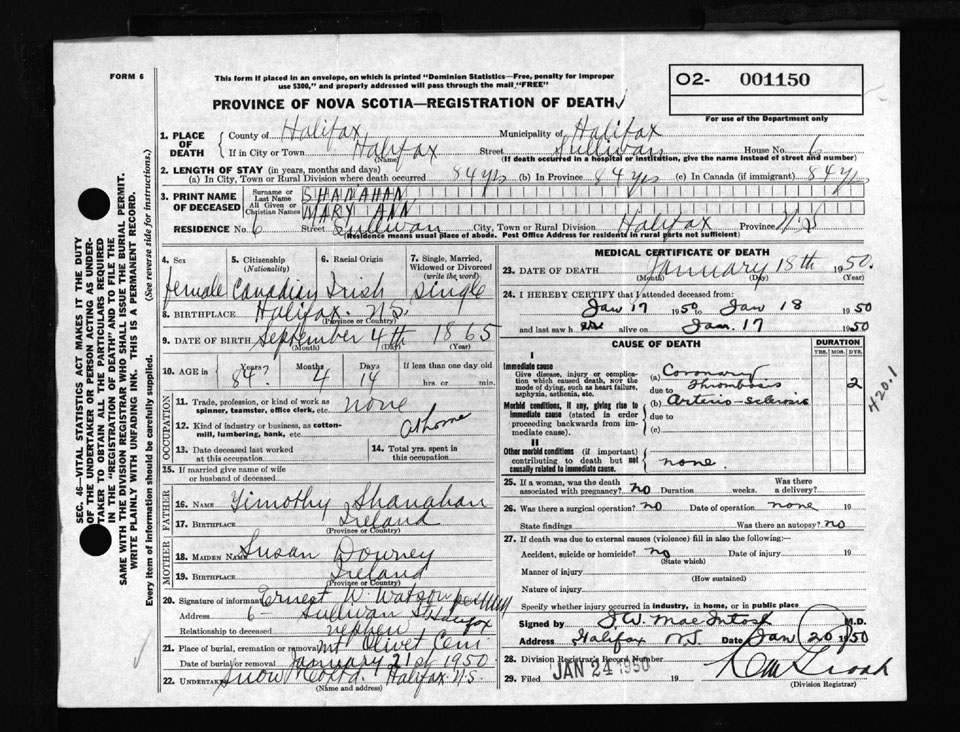 FORM 6
This form if placed in an envelope, on which is printed "Dominion Statistics—Free, penalty for improper
use $300," and properly addressed will pass through the mail "FREE"
O2- 001150
For use of the Department only
PROVINCE OF NOVA SCOTIA—REGISTRATION OF DEATH
1. PLACE OF DEATH County of Halifax Municipality of Halifax
If in City or Town Halifax (Name) Street Sullivan House No. 6
(If death occurred in a hospital or institution, give the name instead of street and number)
2. LENGTH OF STAY (in years, months and days)
(a) In City, Town or Rural Division where death occurred 84 yrs (b) In Province 84 yrs (c) In Canada (if immigrant) 84 yrs
3. PRINT NAME OF DECEASED Surname or Last Name SHANAHAN
All Given or Christian Names MARY ANN
RESIDENCE No. 6 Street Sullivan City, Town or Rural Division Halifax Province N.S
(Residence means usual place of abode. Post Office Address for residents in rural parts not sufficient)
4. Sex female
5. Citizenship (Nationality) Canadian
6. Racial Origin Irish
7. Single, Married, Widowed or Divorced (write the word) Single
8. BIRTHPLACE Halifax N.S. (Province or Country)
9. DATE OF BIRTH September (Month) 4th (Day) 1865 (Year)
10. AGE in Years 84? Months 4 Days 14 If less than one day old hrs. or min.
OCCUPATION
11. Trade, profession, or kind of work as spinner, teamster, office clerk, etc. none
12. Kind of industry or business, as cotton-mill, lumbering, bank, etc. at home
13. Date deceased last worked at this occupation
14. Total yrs. spent in this occupation
15. If married give name of wife or husband of deceased
FATHER
16. NAME Timothy Shanahan
17. BIRTHPLACE Ireland (Province or Country)
MOTHER
18. MAIDEN NAME Susan Downey
19. BIRTHPLACE Ireland (Province or Country)
20. Signature of informant Ernest W. Watson
Address 6 Sullivan St Halifax
Relationship to deceased nephew
21. Place of burial, cremation or removal Mt Olivet Cem
Date of burial or removal January 21st 1950
22. UNDERTAKER Snow & Co Ltd. Halifax N.S.
(Name and address)
MEDICAL CERTIFICATE OF DEATH
23. DATE OF DEATH January (Month) 18th (Day) 1950. (Year)
24. I HEREBY CERTIFY that I attended deceased from:
Jan 17 1950 to Jan 18 1950
and last saw h er alive on Jan. 17 1950
CAUSE OF DEATH
DURATION
YRS. MOS. DYS.
I
Immediate cause
Give disease, injury or complication which caused death, NOT the mode of dying, such as heart failure, asphyxia, asthenia, etc.
(a) Coronary Thrombosis 2
due to
Morbid conditions, if any, giving rise to immediate cause (stated in order proceeding backwards from immediate cause).
(b) Arterio-sclerosis
due to
(c)
420.1
II
Other morbid conditions (if important) contributing to death but not causally related to immediate cause.
none.
25. If a woman, was the death associated with pregnancy? no Duration weeks. Was there a delivery?
26. Was there a surgical operation? no Date of operation none 19
State findings Was there an autopsy? no
27. If death was due to external causes (violence) fill in also the following:—
Accident, suicide or homicide? no (State which) Date of injury 19
Manner of injury (How sustained)
Nature of injury
Specify whether injury occurred in industry, in home, or in public place
Signed by MacIntosh M.D.
Address Halifax N.S. Date Jan 20 1950
28. Division Registrar's Record Number
29. Filed JAN 24 1950 19
(Division Registrar)
SEC. 46—VITAL STATISTICS ACT MAKES IT THE DUTY
OF THE UNDERTAKER OR PERSON ACTING AS UNDER-
TAKER TO OBTAIN ALL THE PARTICULARS REQUIRED
IN THE "REGISTRATION OF DEATH" AND TO FILE THE
SAME WITH THE DIVISION REGISTRAR WHO SHALL ISSUE THE BURIAL PERMIT.
WRITE PLAINLY WITH UNFADING INK. THIS IS A PERMANENT RECORD.
Every item of information should be carefully supplied. (See reverse side for instructions.)